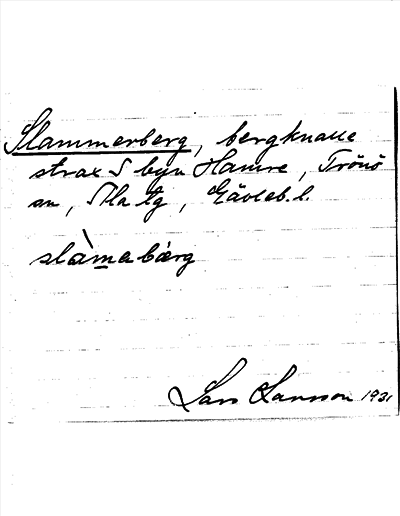 Slammerberg, bergknalle
strax S byn Hamre, Trönö
sn, Ala tg, Gävleb. l.
slàmabärg
Lars Larsson 1931